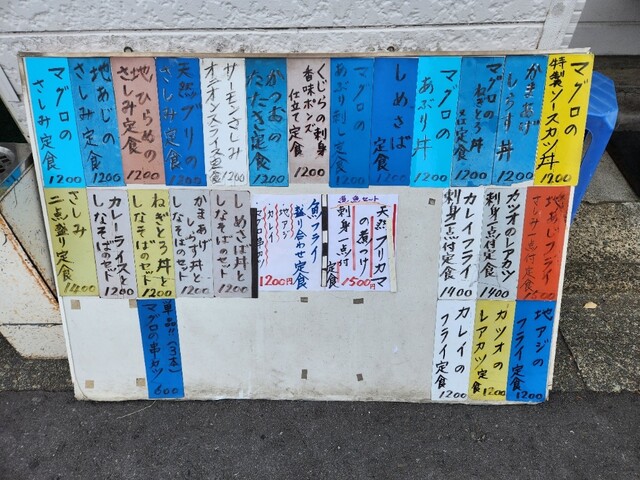 特製
マグロの
ソースカツ丼
1200
かまあげ
しらす丼
1200
マグロの
ねぎとろ丼
1200
マグロの
あぶり丼
1200
しめさば
定食
1200
あぶり刺し定食
1200
くじらの刺身
香味ポンズ
仕立て定食
1200
かつおの
たたき定食
1200
サーモンさしみ
オニオンスライス定食
1200
天然ブリの
さしみ定食
1200
地ひらめの
さしみ定食
1200
地あじの
さしみ定食
1200
マグロの
さしみ定食
1200
地アジフライ
さしみ一点付定食
カツオのレアカツ
刺身一点付定食
1400
カレイフライ
刺身一点付定食
1400
煮魚セット
天然ブリカマ
の煮つけ
刺身一点付
定食
1500円
魚フライ
盛り合わせ定食
地アジ
カレイ
マグロ串カツ
1200円
しめさば丼と
しなそばのセット
1200
かまあげ
しらす丼と
しなそばのセット
1200
ねぎとろ丼と
しなそばのセット
1200
カレーライスと
しなそばのセット
1200
さしみ
二点盛り定食
1400
地アジの
フライ定食
1200
カツオの
レアカツ定食
1200
カレイの
フライ定食
1200
単品(3本)
マグロの串カツ
600